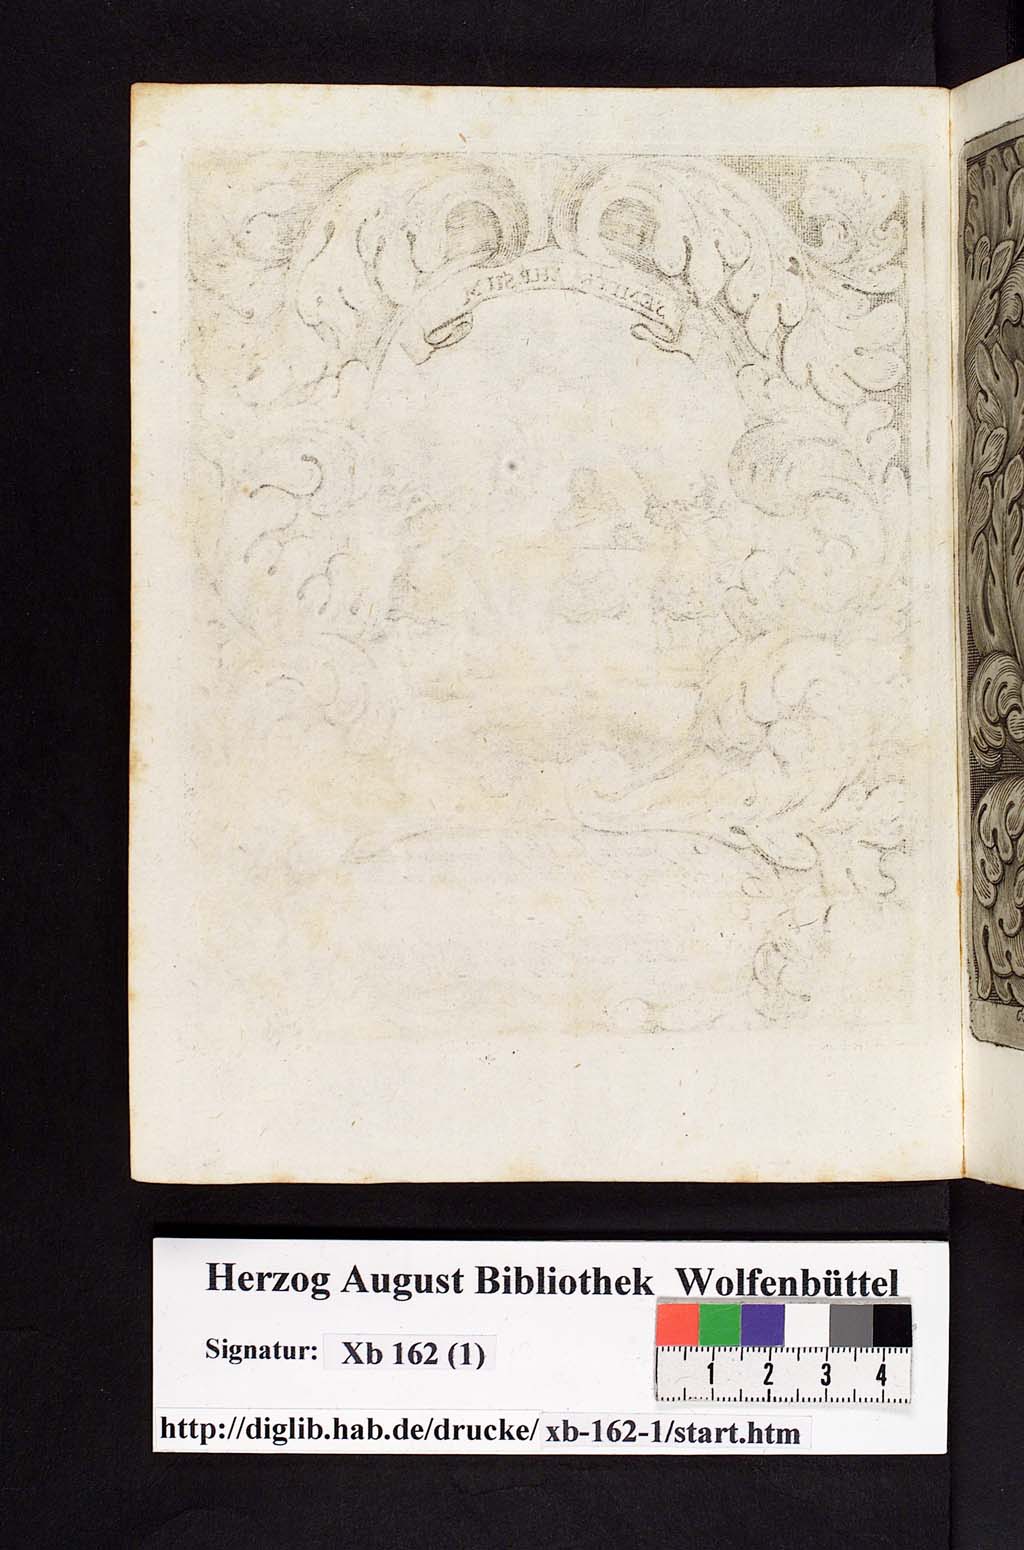 Herzog August Bibliothek Wolfenbüttel
Signatur: Xb 162 (1)
1 2 3 4
http://diglib.hab.de/drucke/ xb-162-1/start.htm